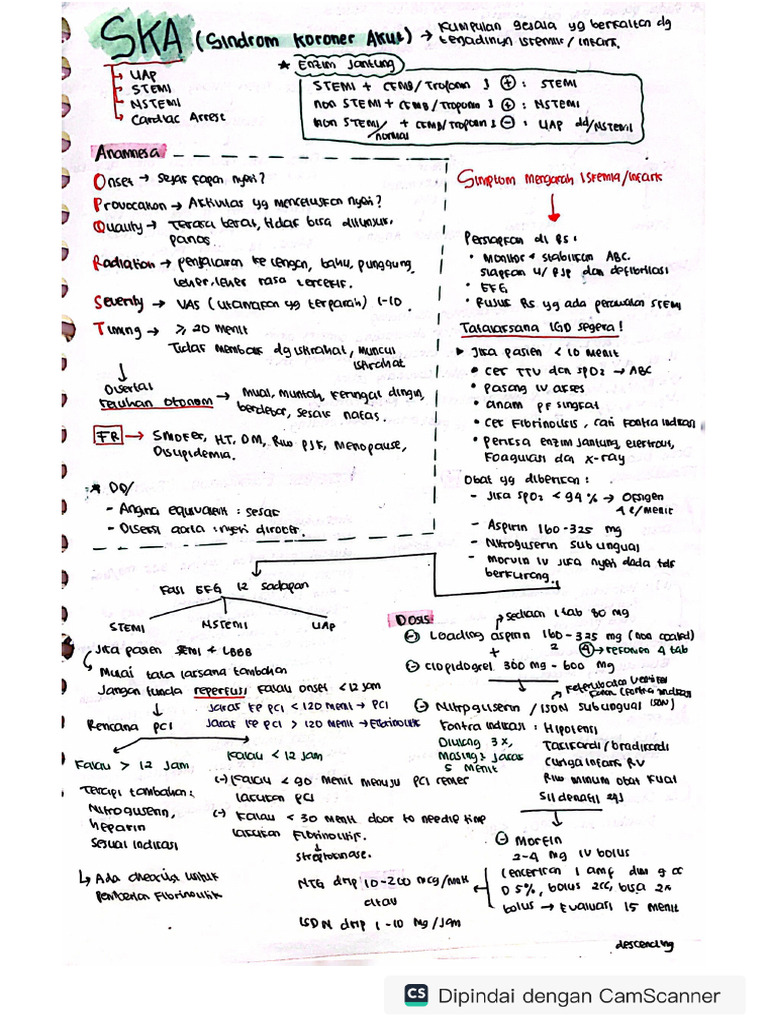 SKA (Sindrom Koroner Akut) → Kumpulan gejala yg berkaitan dg
terjadinya iskemik / infark.
UAP
STEMI
NSTEMI
Cardiac Arrest
* Enzim Jantung
STEMI + CKMB/Troponin I (+) : STEMI
non STEMI + CKMB/Troponin I (+) : NSTEMI
non STEMI/normal + CKMB/Troponin I (-) : UAP dd/NSTEMI
Anamnesa
Onset → sejak kapan nyeri?
Provocation → Aktivitas yg mencetuskan nyeri?
Quality → Terasa berat, tidak bisa ditunjuk,
panas.
Radiation → penjalaran ke lengan, bahu, punggung
leher, leher rasa tercekik.
Severity → VAS (utamakan yg terparah) 1-10
Timing → ≥ 20 menit
Tidak membaik dg istirahat, muncul
istirahat
↓
Disertai
keluhan otonom → Mual, muntah, keringat dingin,
berdebar, sesak nafas.
FR → Smoker, HT, DM, Riw PJK, Menopause,
Dislipidemia.
* DD/
- Angina equivalent : sesak
- Diseksi aorta : nyeri dirobek.
Simptom mengarah Iskemia/Infark
↓
Persiapan di RS :
• Monitor + stabilkan ABC.
siapkan u/ RJP dan defibrilasi
• EKG
• Rujuk RS yg ada perawatan STEMI
Tatalaksana IGD segera!
► Jika pasien < 10 menit
• Cek TTV dan SpO2 → ABC
• pasang IV akses
• anam PF singkat
• Cek Fibrinolisis, cari kontra indikasi
• Periksa enzim jantung, elektrolit,
koagulasi dan x-ray
Obat yg diberikan :
- Jika SpO2 < 94% → Oksigen
4 L/menit
- Aspirin 160-325 mg
- Nitrogliserin sublingual
- Morvin IV jika nyeri dada tdk
berkurang.
Kaji EKG 12 sadapan
STEMI NSTEMI UAP
Jika pasien STEMI + LBBB
Mulai tata laksana tambahan
Jangan tunda reperfusi kalau onset <12 jam
Jarak ke PCI < 120 menit → PCI
Jarak ke PCI > 120 menit → Fibrinolitik
Rencana PCI
Kalau > 12 Jam
Terapi tambahan:
Nitrogliserin,
heparin
sesuai indikasi
↳ Ada checklis untuk
pemberian fibrinolitik
Kalau < 12 Jam
(-) Kalau < 90 menit menuju PCI center
lakukan PCI
(-) Kalau < 30 menit door to needle time
lakukan Fibrinolitik.
↓
Streptokinase.
Dosis
sediaan 1 tab 80 mg
(-) Loading aspirin 160-325 mg (non coated)
2 (4) → kerumen 4 tab
+
(-) Clopidogrel 300 mg - 600 mg
(-) Nitrogliserin / ISDN sublingual
Kontra indikasi : Hipotensi
Takikardi / bradikardi
Curiga infark RV
Riw minum obat kuat
Sildenafil
Diulang 3x,
Masing2 jarak
5 menit
↓
(-) Morfin
2-4 mg IV bolus
Encerkan 1 amp dlm 9 cc
D5%, bolus 2cc, bisa 2x
bolus → Evaluasi 15 menit
NTG drip 10-200 mcg/mnt
atau
ISDN drip 1-10 mg/jam
descending
CS Dipindai dengan CamScanner